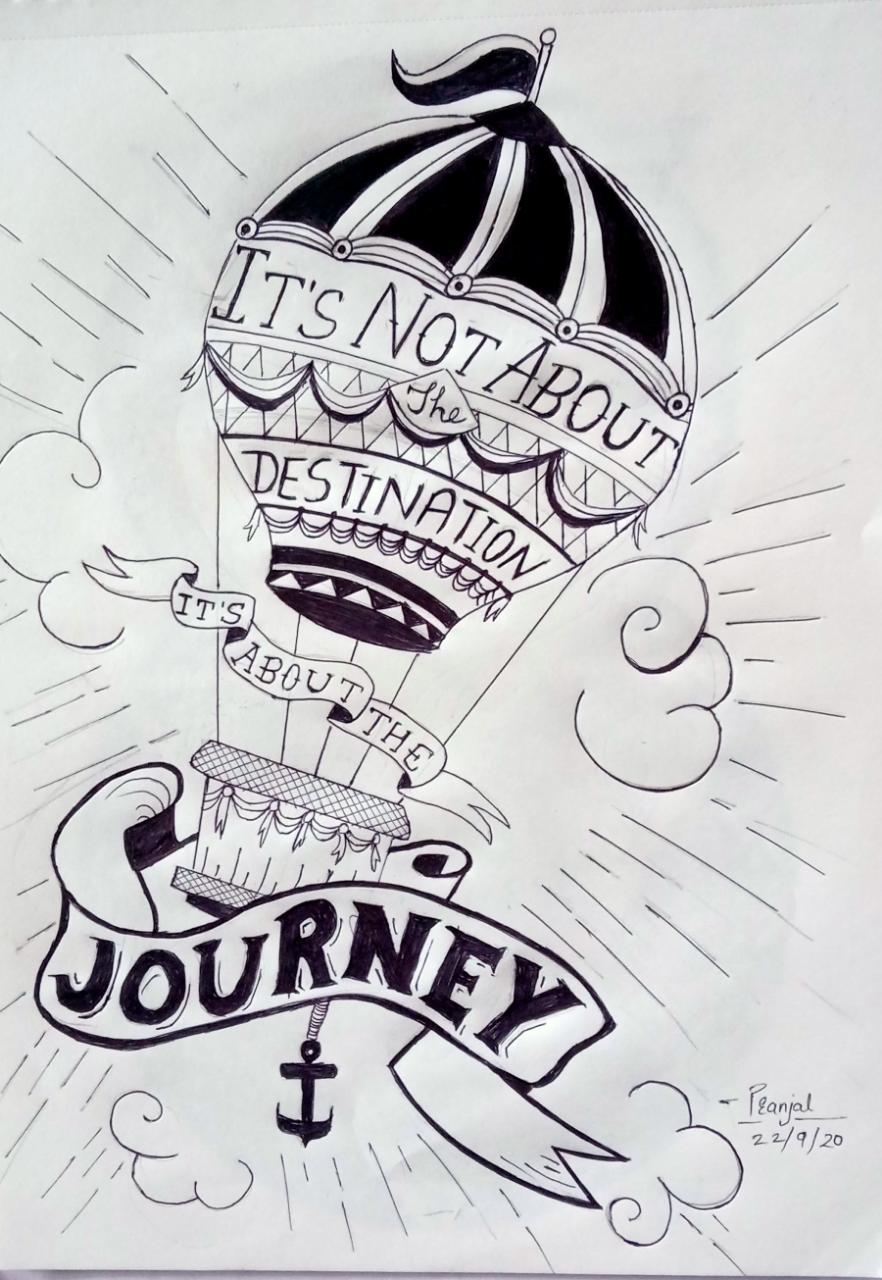 IT'S NOT ABOUT
The
DESTINATION
IT'S
ABOUT
THE
JOURNEY
- Pranjal
22/9/20